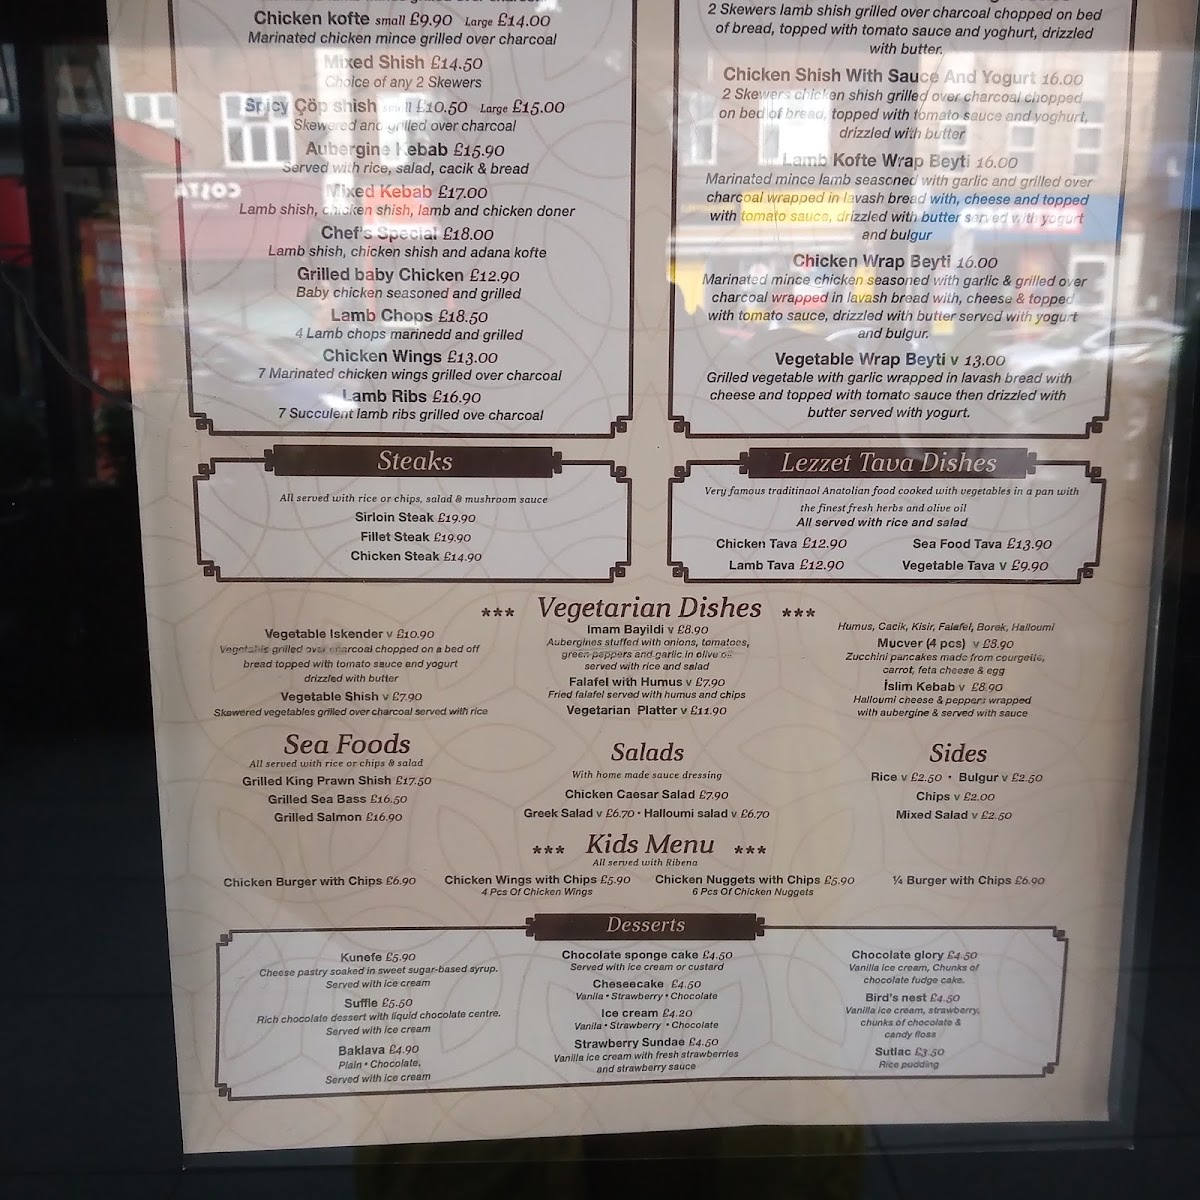 Chicken kofte small £9.90 Large £14.00
Marinated chicken mince grilled over charcoal
Mixed Shish £14.50
Choice of any 2 Skewers
Spicy Çöp shish small £10.50 Large £15.00
Skewered and grilled over charcoal
Aubergine Kebab £15.90
Served with rice, salad, cacik & bread
Mixed Kebab £17.00
Lamb shish, chicken shish, lamb and chicken doner
Chef's Special £18.00
Lamb shish, chicken shish and adana kofte
Grilled baby Chicken £12.90
Baby chicken seasoned and grilled
Lamb Chops £18.50
4 Lamb chops marinedd and grilled
Chicken Wings £13.00
7 Marinated chicken wings grilled over charcoal
Lamb Ribs £16.90
7 Succulent lamb ribs grilled ove charcoal
2 Skewers lamb shish grilled over charcoal chopped on bed
of bread, topped with tomato sauce and yoghurt, drizzled
with butter.
Chicken Shish With Sauce And Yogurt 16.00
2 Skewers chicken shish grilled over charcoal chopped
on bed of bread, topped with tomato sauce and yoghurt,
drizzled with butter
Lamb Kofte Wrap Beyti 16.00
Marinated mince lamb seasoned with garlic and grilled over
charcoal wrapped in lavash bread with, cheese and topped
with tomato sauce, drizzled with butter served with yogurt
and bulgur
Chicken Wrap Beyti 16.00
Marinated mince chicken seasoned with garlic & grilled over
charcoal wrapped in lavash bread with, cheese & topped
with tomato sauce, drizzled with butter served with yogurt
and bulgur.
Vegetable Wrap Beyti v 13.00
Grilled vegetable with garlic wrapped in lavash bread with
cheese and topped with tomato sauce then drizzled with
butter served with yogurt.
Steaks
All served with rice or chips, salad & mushroom sauce
Sirloin Steak £19.90
Fillet Steak £19.90
Chicken Steak £14.90
Lezzet Tava Dishes
Very famous traditinaol Anatolian food cooked with vegetables in a pan with
the finest fresh herbs and olive oil
All served with rice and salad
Chicken Tava £12.90 Sea Food Tava £13.90
Lamb Tava £12.90 Vegetable Tava v £9.90
*** Vegetarian Dishes ***
Vegetable Iskender v £10.90
Vegetable grilled over charcoal chopped on a bed off
bread topped with tomato sauce and yogurt
drizzled with butter
Vegetable Shish v £7.90
Skewered vegetables grilled over charcoal served with rice
Imam Bayildi v £8.90
Aubergines stuffed with onions, tomatoes,
green peppers and garlic in olive oil
served with rice and salad
Falafel with Humus v £7.90
Fried falafel served with humus and chips
Vegetarian Platter v £11.90
Humus, Cacik, Kisir, Falafel, Borek, Halloumi
Mucver (4 pcs) v £8.90
Zucchini pancakes made from courgette,
carrot, feta cheese & egg
İslim Kebab v £8.90
Halloumi cheese & peppers wrapped
with aubergine & served with sauce
Sea Foods
All served with rice or chips & salad
Grilled King Prawn Shish £17.50
Grilled Sea Bass £16.50
Grilled Salmon £16.90
Salads
With home made sauce dressing
Chicken Caesar Salad £7.90
Greek Salad v £6.70 • Halloumi salad v £6.70
Sides
Rice v £2.50 • Bulgur v £2.50
Chips v £2.00
Mixed Salad v £2.50
*** Kids Menu ***
All served with Ribena
Chicken Burger with Chips £6.90
Chicken Wings with Chips £5.90
4 Pcs Of Chicken Wings
Chicken Nuggets with Chips £5.90
6 Pcs Of Chicken Nuggets
¼ Burger with Chips £6.90
Desserts
Kunefe £5.90
Cheese pastry soaked in sweet sugar-based syrup.
Served with ice cream
Suffle £5.50
Rich chocolate dessert with liquid chocolate centre.
Served with ice cream
Baklava £4.90
Plain • Chocolate.
Served with ice cream
Chocolate sponge cake £4.50
Served with ice cream or custard
Cheseecake £4.50
Vanila • Strawberry • Chocolate
Ice cream £4.20
Vanila • Strawberry • Chocolate
Strawberry Sundae £4.50
Vanilla ice cream with fresh strawberries
and strawberry sauce
Chocolate glory £4.50
Vanilla ice cream, Chunks of
chocolate fudge cake.
Bird's nest £4.50
Vanilla ice cream, strawberry,
chunks of chocolate &
candy floss
Sutlac £3.50
Rice pudding
COSTA